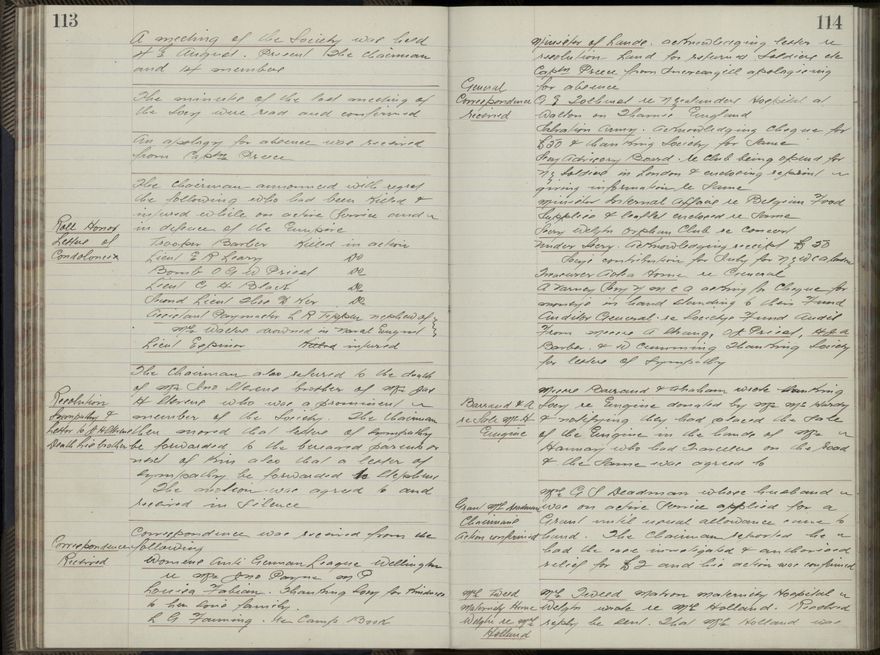 113
A meeting of the Society was held
of August. Present The Chairman
and 14 members
The minutes of the last meeting of
the Socy were read and confirmed
An apology for absence was received
from Captn Preece
The Chairman announced with regret
the following who had been Killed &
injured while on active Service and
in defence of the Empire
Roll Honor
Letters of
Condolence
Trooper Barber Killed in action
Lieut E R Leary Do
Bomb O G W Priest Do
Lieut C H Black Do
Second Lieut Do
Assistant Paymaster L R nephew of
Mr drowned in Naval
Lieut injured
The Chairman also referred to the death
of Mr Jno Stevens brother of Mr Jas
H Stevens who was a prominent
member of the Society. The Chairman
Resolution
Sympathy &
Letter to J H Stevens
Death his brother
then moved that letters of sympathy
be forwarded to the bereaved parents or
next of Kin also that a letter of
sympathy be forwarded to Stephens
The motion was agreed to and
received in Silence
Correspondence was received from the
Correspondence
Received
following
Womens Anti German League Wellington
re Mr Jno Payne M P
Louisa Fabian. Thanking Socy for Kindness
to her Sons family.
L G Fanning. re Camp Book
114
Minister of Lands. acknowledging letter re
resolution Land for returned Soldiers etc
Captn Preece from apologising
for absence
General
Correspondence
received
re New Zealanders Hospital at
Walton on Thames England
Salvation Army. Acknowledging Cheque for
£50 & thanking Society for Same
Socy Advisory Board re Club being opened for
NZ Soldiers in London & enclosing
giving information re Same
Minister Internal Affairs re Belgium Food
Supplies & leaflet enclosed re Same
Socy Welgtn Orphan Club re Concert
Under Secy. Acknowledging receipt £
contribution for July for
Treasurer Home re General
A Varney Socy Y M C A asking for Cheque for
moneys in hand standing to their Fund
Auditor General re Societys Fund Audit
From Messrs A Strang, Priest, H
Barber, & W Cumming Thanking Society
for letters of Sympathy
Messrs Barraud & Abraham wrote thanking
Barraud & A
re Sale
Engine
Socy re Engine donated by Mr
& notifying they had placed the Sale
of the Engine in the hands of Mr
Hannay who had Travellers on the road
& the Same was agreed to
Mrs G S Deadman whose husband
Grant Mrs Deadman
Chairmans
action confirmed
was on active Service applied for a
Grant until usual allowance came to
hand. The Chairman reported he
had the case investigated & authorised
relief for £2 and his action was confirmed
Mrs Tweed
Maternity Home
Welgtn re Mrs
Holland
Mrs Tweed Matron Maternity Hospital
Welgtn wrote re Mrs Holland. Resolved
reply be sent. That Mrs Holland was